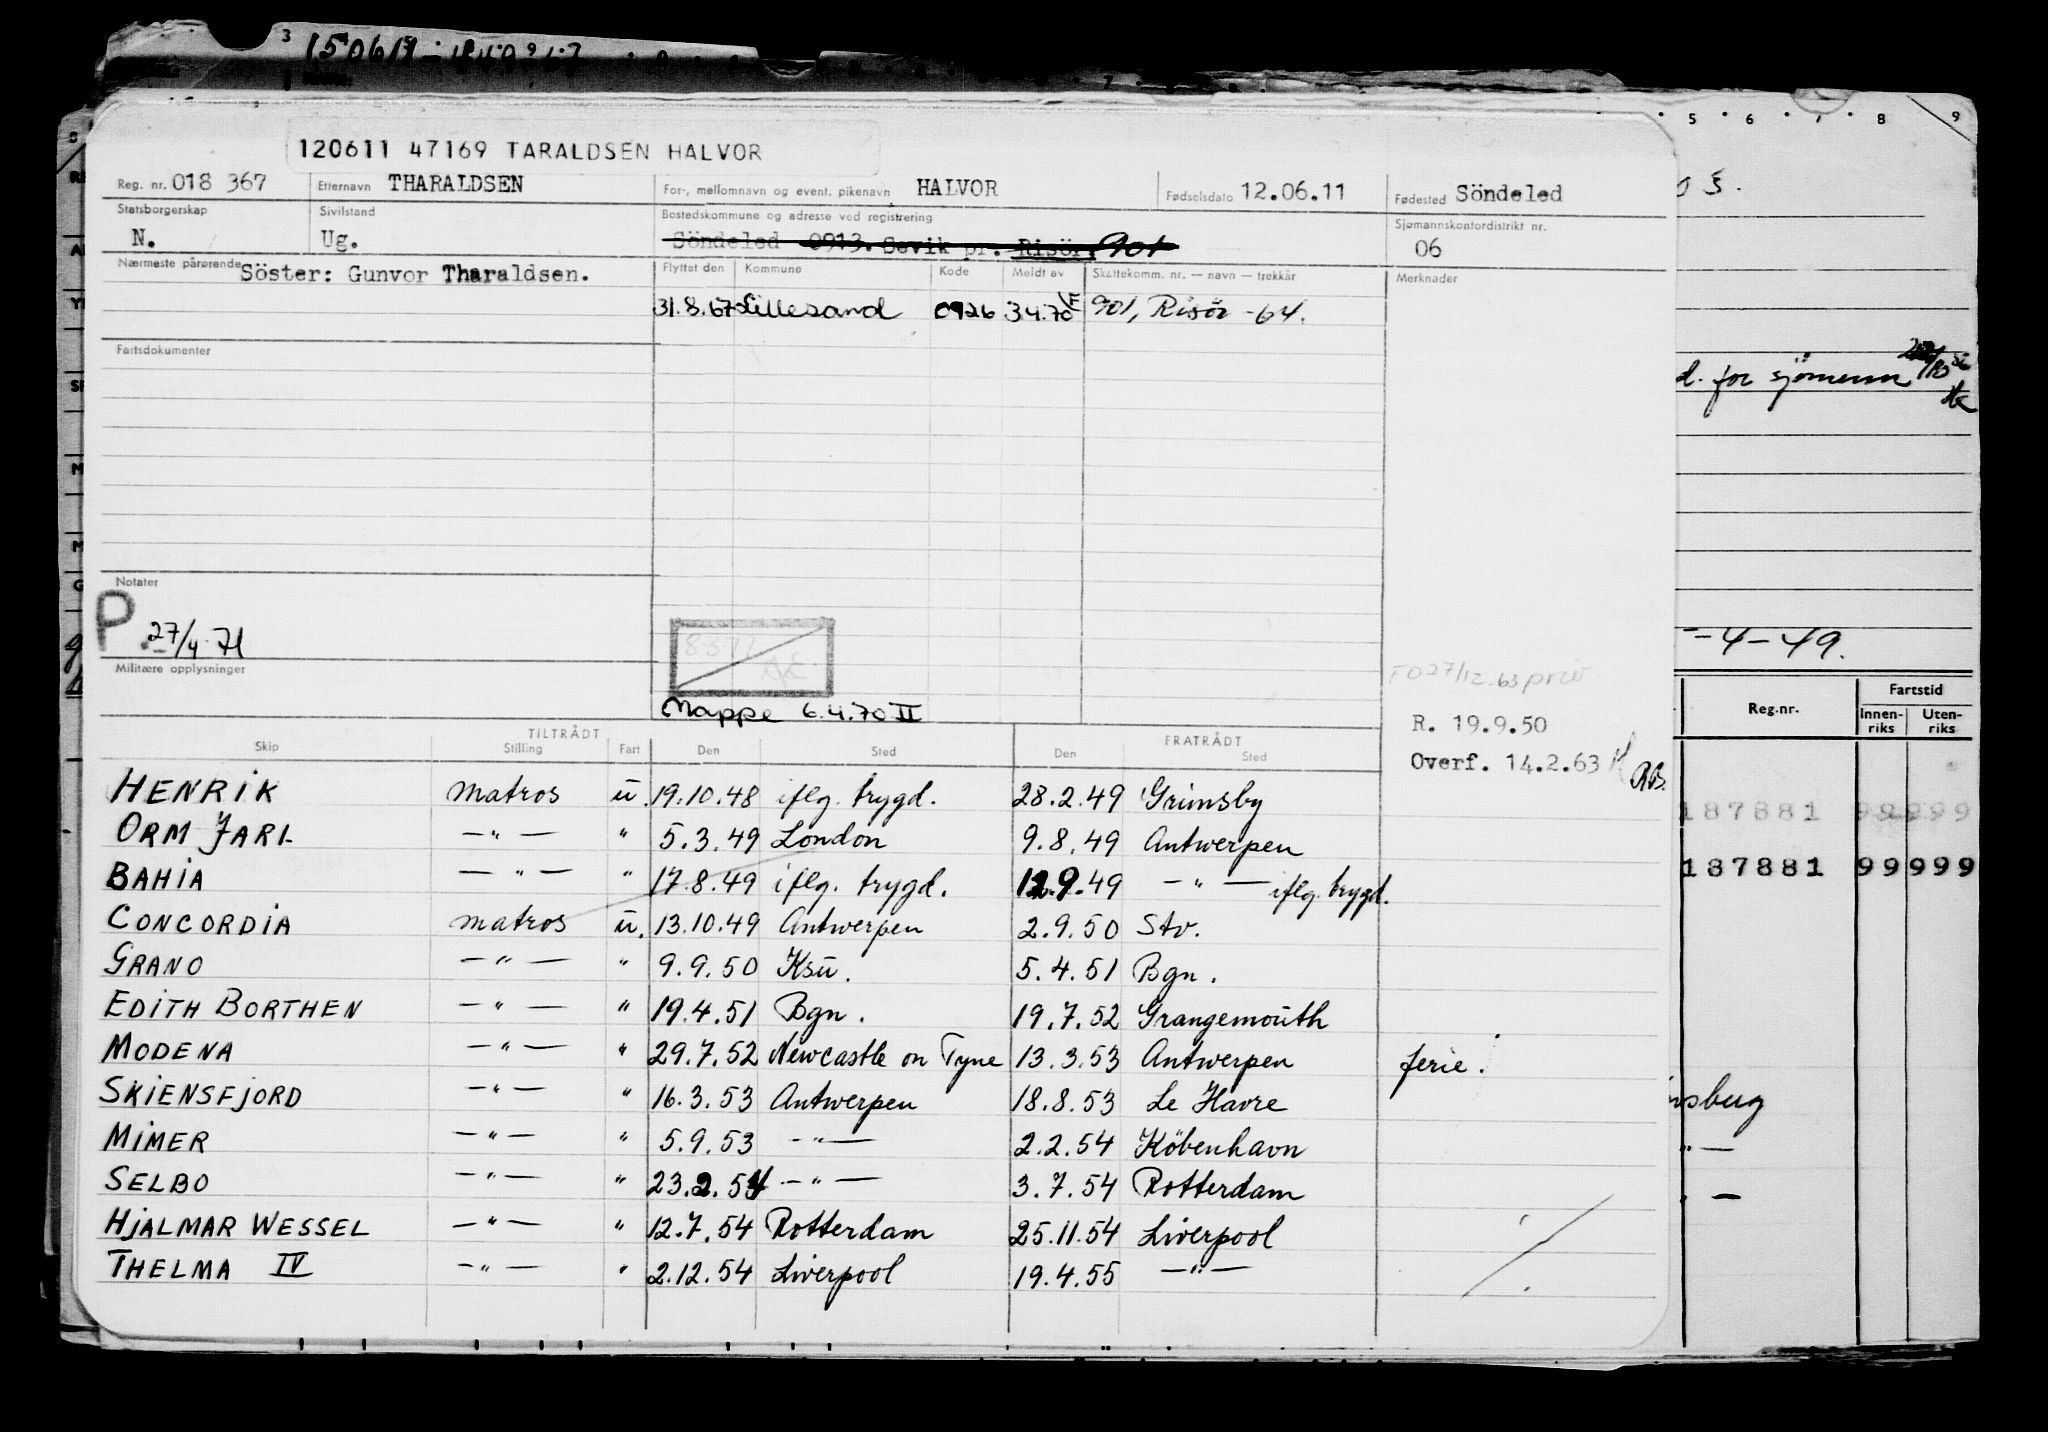 120611 47169 TARALDSEN HALVOR
Reg. nr. 018 367 Etternavn THARALDSEN For-, mellomnavn og event. pikenavn HALVOR Fødselsdato 12.06.11 Fødested Söndeled
Statsborgerskap N. Sivilstand Ug. Bostedskommune og adresse ved registrering Söndeled 0913. Sevik pr. Risör. 901 Sjømannskontordistrikt nr. 06
Nærmeste pårørende Söster: Gunvor Tharaldsen. Flyttet den Kommune Kode Meldt av Skattekomm. nr. — navn — trekkår Merknader
31.8.67 Lillesand 0926 3.4.70 901, Risör -64.
Fartsdokumenter
d. for sjömenn
Notater
P. 27/4-71
-4-49.
Militære opplysninger
FO 27/12.63
Mappe 6.4.70 II
R. 19.9.50
Overf. 14.2.63
TILTRÅDT FRATRÅDT
Skip Stilling Fart Den Sted Den Sted
Reg.nr. Fartstid
Innen-riks Uten-riks
HENRIK matros u. 19.10.48 iflg. trygd. 28.2.49 Grimsby
187881 99999
ORM JARL —"— " 5.3.49 London 9.8.49 Antwerpen
BAHIA —"— " 17.8.49 iflg. trygd. 12.9.49 —"— iflg. trygd.
187881 99999
CONCORDIA matros u. 13.10.49 Antwerpen 2.9.50 Stv.
GRANO —"— " 9.9.50 Ksu. 5.4.51 Bgn.
EDITH BORTHEN —"— " 19.4.51 Bgn. 19.7.52 Grangemouth
MODENA —"— " 29.7.52 Newcastle on Tyne 13.3.53 Antwerpen ferie.
SKIENSFJORD —"— " 16.3.53 Antwerpen 18.8.53 Le Havre
MIMER —"— " 5.9.53 —"— 2.2.54 Köbenhavn
SELBO —"— " 23.2.54 —"— 3.7.54 Rotterdam
HJALMAR WESSEL —"— " 12.7.54 Rotterdam 25.11.54 Liverpool
THELMA IV —"— " 2.12.54 Liverpool 19.4.55 —"—